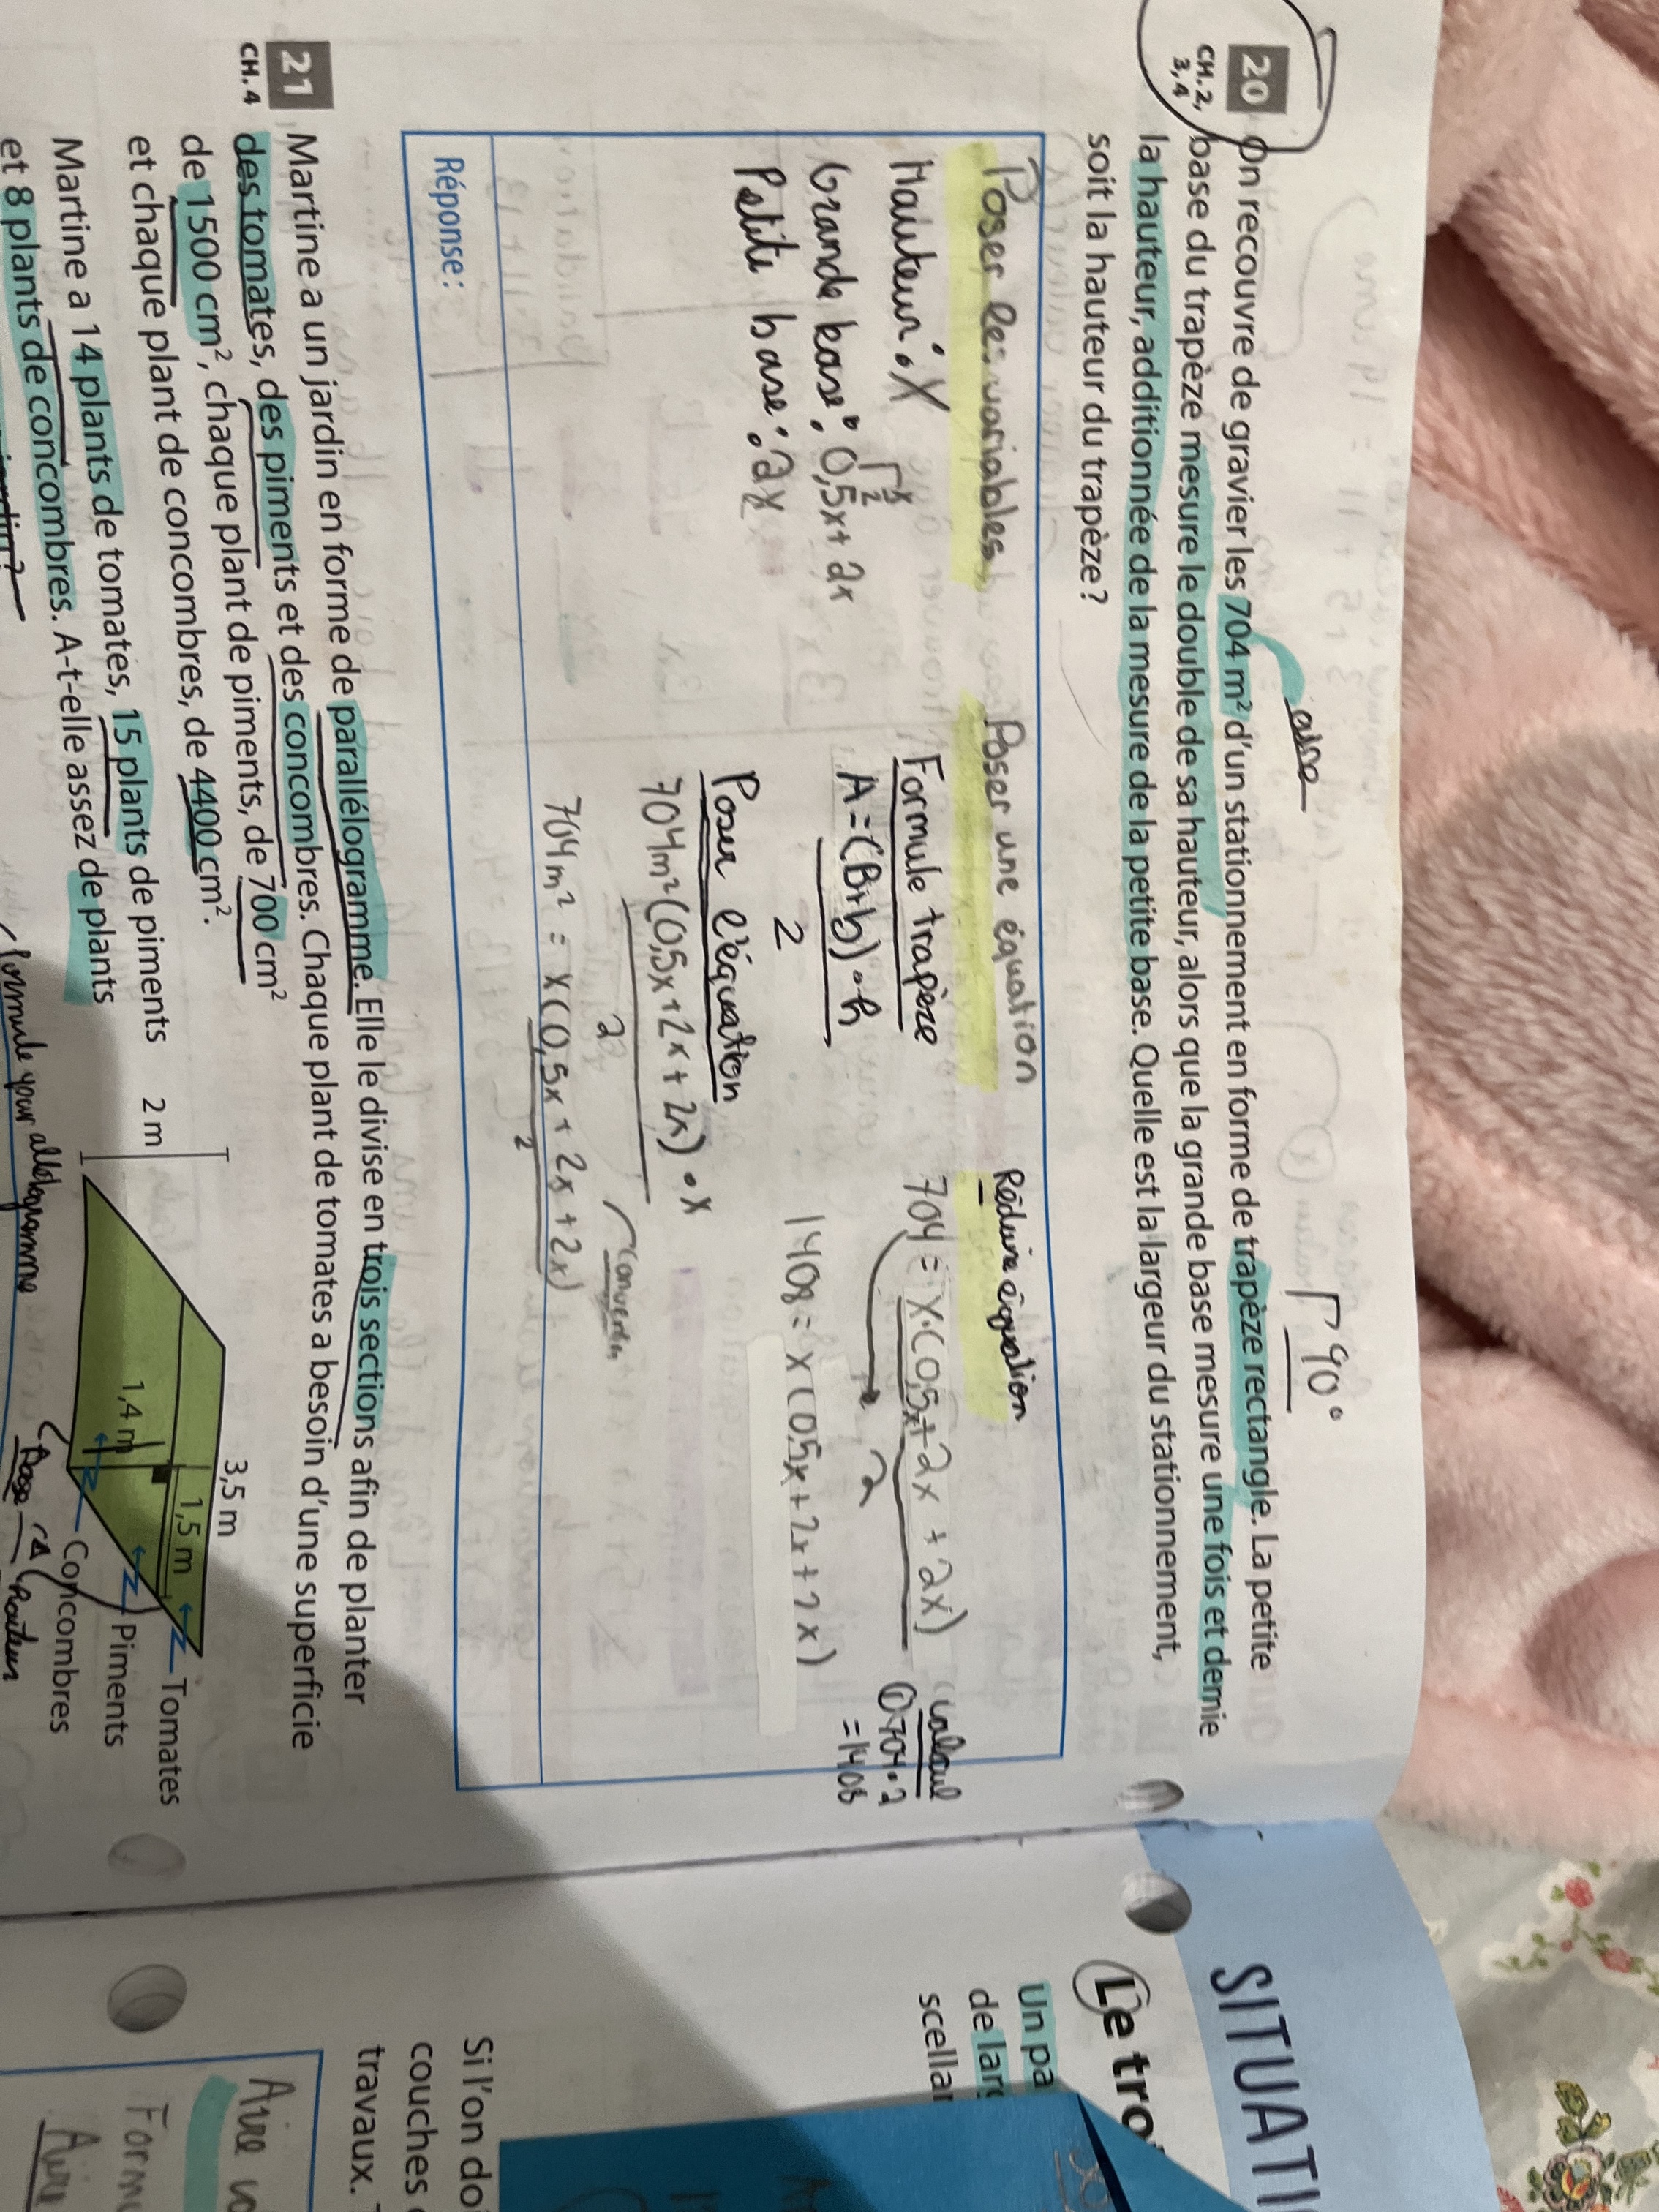 aire
90°
20 On recouvre de gravier les 704 m² d'un stationnement en forme de trapèze rectangle. La petite
CH. 2, 3, 4 base du trapèze mesure le double de sa hauteur, alors que la grande base mesure une fois et demie
la hauteur, additionnée de la mesure de la petite base. Quelle est la largeur du stationnement,
soit la hauteur du trapèze ?
Poser les variables
Hauteur : X
x/2
Grande base : 0,5x + 2x
Petite base : 2x
Poser une équation
Formule trapèze
A = (B+b) • h
2
Poser l'équation
704m² (0,5x + 2x + 2x) • x
2
704m² = x(0,5x + 2x + 2x)
2
Réduire équation
704 = x•(0,5x + 2x + 2x)
2
1408 = x(0,5x + 2x + 2x)
calcul
① 704•2
= 1408
Réponse :
21 Martine a un jardin en forme de parallélogramme. Elle le divise en trois sections afin de planter
CH. 4 des tomates, des piments et des concombres. Chaque plant de tomates a besoin d'une superficie
de 1500 cm², chaque plant de piments, de 700 cm²
et chaque plant de concombres, de 4400 cm².
Martine a 14 plants de tomates, 15 plants de piments
et 8 plants de concombres. A-t-elle assez de plants
3,5 m
2 m
1,5 m
1,4 m
Tomates
Piments
Concombres
SITUATI
Le tro
Un pa
de larg
scellar
Si l'on do
couches
travaux.
Aire
Form
Aire